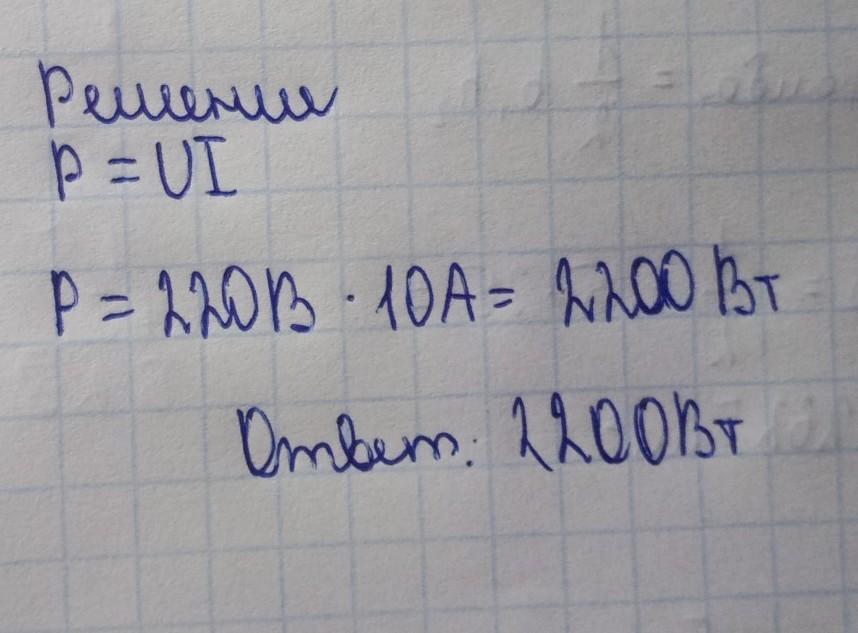 Решение
P = UI
P = 220В · 10А = 2200 Вт
Ответ: 2200Вт